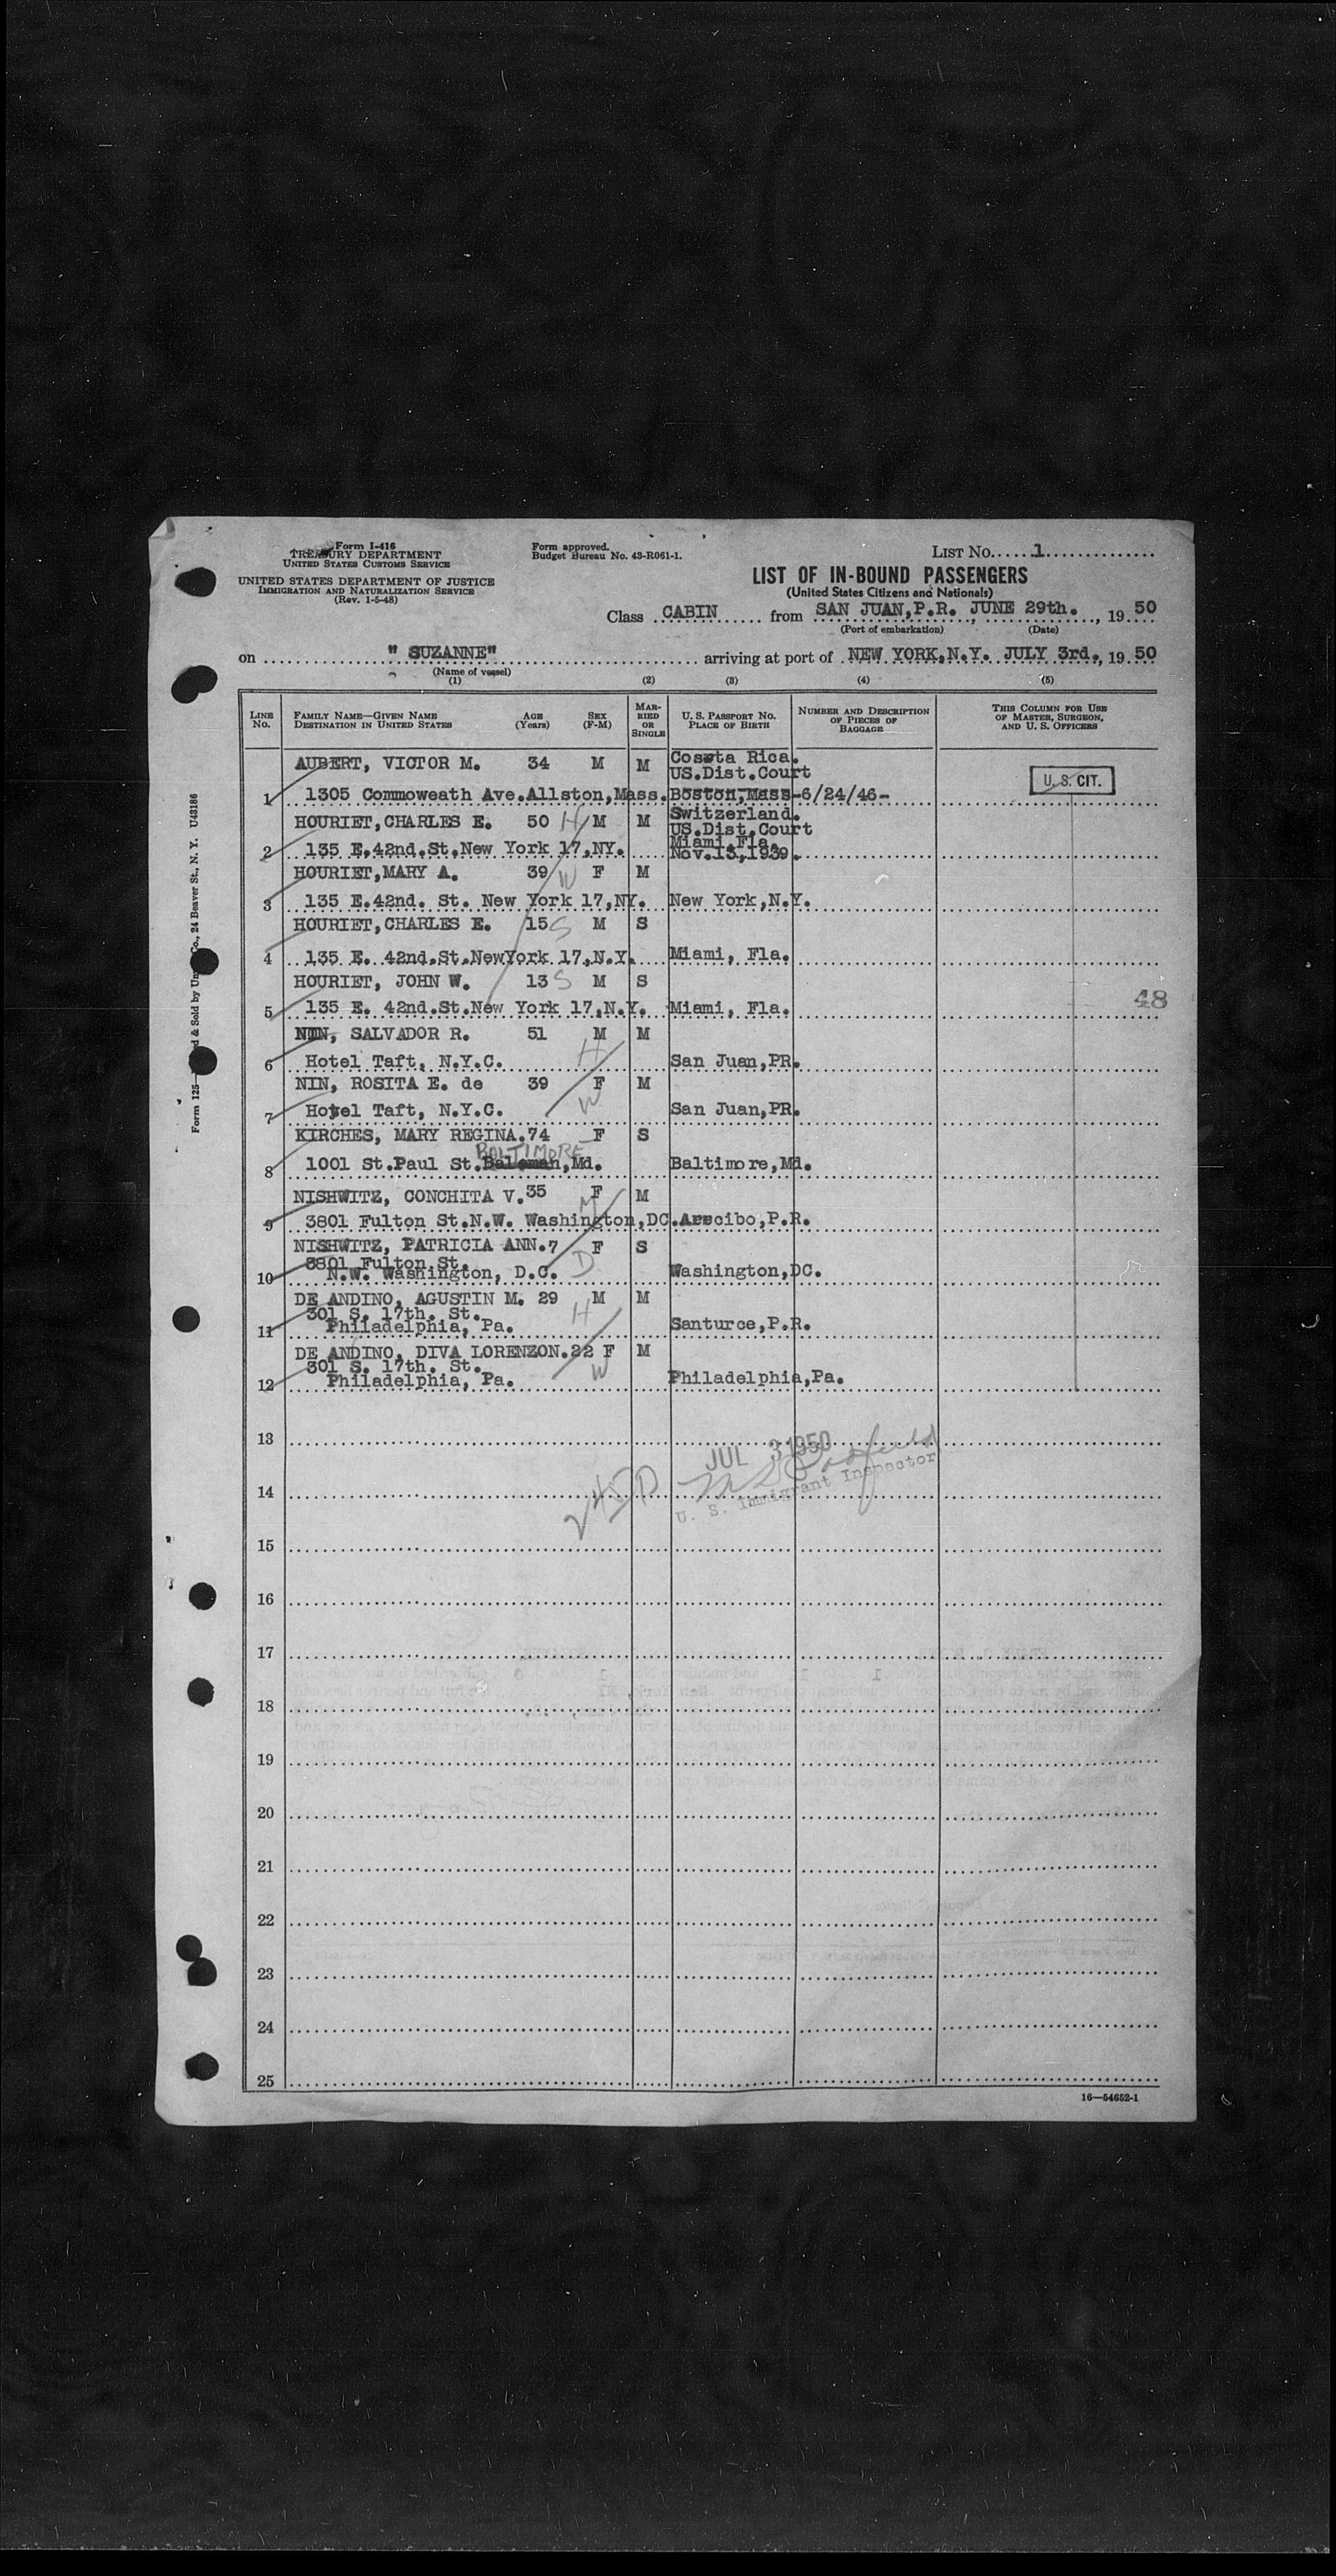 Form I-416
TREASURY DEPARTMENT
UNITED STATES CUSTOMS SERVICE
UNITED STATES DEPARTMENT OF JUSTICE
IMMIGRATION AND NATURALIZATION SERVICE
(Rev. 1-5-48)
Form approved.
Budget Bureau No. 43-R061-1.
LIST No. 1
LIST OF IN-BOUND PASSENGERS
(United States Citizens and Nationals)
Class CABIN from SAN JUAN,P.R. JUNE 29th., 19 50
(Port of embarkation) (Date)
on " SUZANNE" arriving at port of NEW YORK,N.Y. JULY 3rd., 19 50
(Name of vessel)
(1) (2) (3) (4) (5)
LINE No. FAMILY NAME—GIVEN NAME DESTINATION IN UNITED STATES AGE (Years) SEX (F-M) MARRIED OR SINGLE U. S. PASSPORT NO. PLACE OF BIRTH NUMBER AND DESCRIPTION OF PIECES OF BAGGAGE THIS COLUMN FOR USE OF MASTER, SURGEON, AND U. S. OFFICERS
AUBERT, VICTOR M. 34 M M Cossta Rica.
US.Dist.Court
U.S. CIT.
1 1305 Commoweath Ave.Allston,Mass. Boston,Mass-6/24/46-
HOURIET,CHARLES E. 50 H M M Switzerland.
US.Dist.Court
Miami,Fla.
2 135 E.42nd.St.New York 17,NY. Nov.13,1939.
HOURIET,MARY A. 39 W F M
3 135 E.42nd. St. New York 17,NY. New York,N.Y.
HOURIET,CHARLES E. 15 S M S
4 135 E. 42nd.St.NewYork 17,N.Y. Miami, Fla.
HOURIET, JOHN W. 13 S M S
48
5 135 E. 42nd.St.New York 17,N.Y. Miami, Fla.
NIN, SALVADOR R. 51 M M
6 Hotel Taft, N.Y.C. H San Juan,PR.
NIN, ROSITA E. de 39 F M
7 Hotel Taft, N.Y.C. W San Juan,PR.
KIRCHES, MARY REGINA.74 F S
BALTIMORE
8 1001 St.Paul St. ,Md. Baltimore,Md.
NISHWITZ, CONCHITA V. 35 F M
M
9 3801 Fulton St.N.W. Washington,DC. Arecibo,P.R.
NISHWITZ, PATRICIA ANN.7 F S
3801 Fulton St.
10 N.W. Washington, D.C. D Washington,DC.
DE ANDINO, AGUSTIN M. 29 M M
301 S. 17th. St. H
11 Philadelphia, Pa. Santurce,P.R.
DE ANDINO, DIVA LORENZON.22 F M
301 S. 17th. St. W
12 Philadelphia, Pa. Philadelphia,Pa.
13
JUL 3 1950
14
U. S. Immigrant Inspector
15
16
17
18
19
20
21
22
23
24
25
16—54652-1
Form 125
d & Sold by
Co., 24 Beaver St., N. Y. U43186